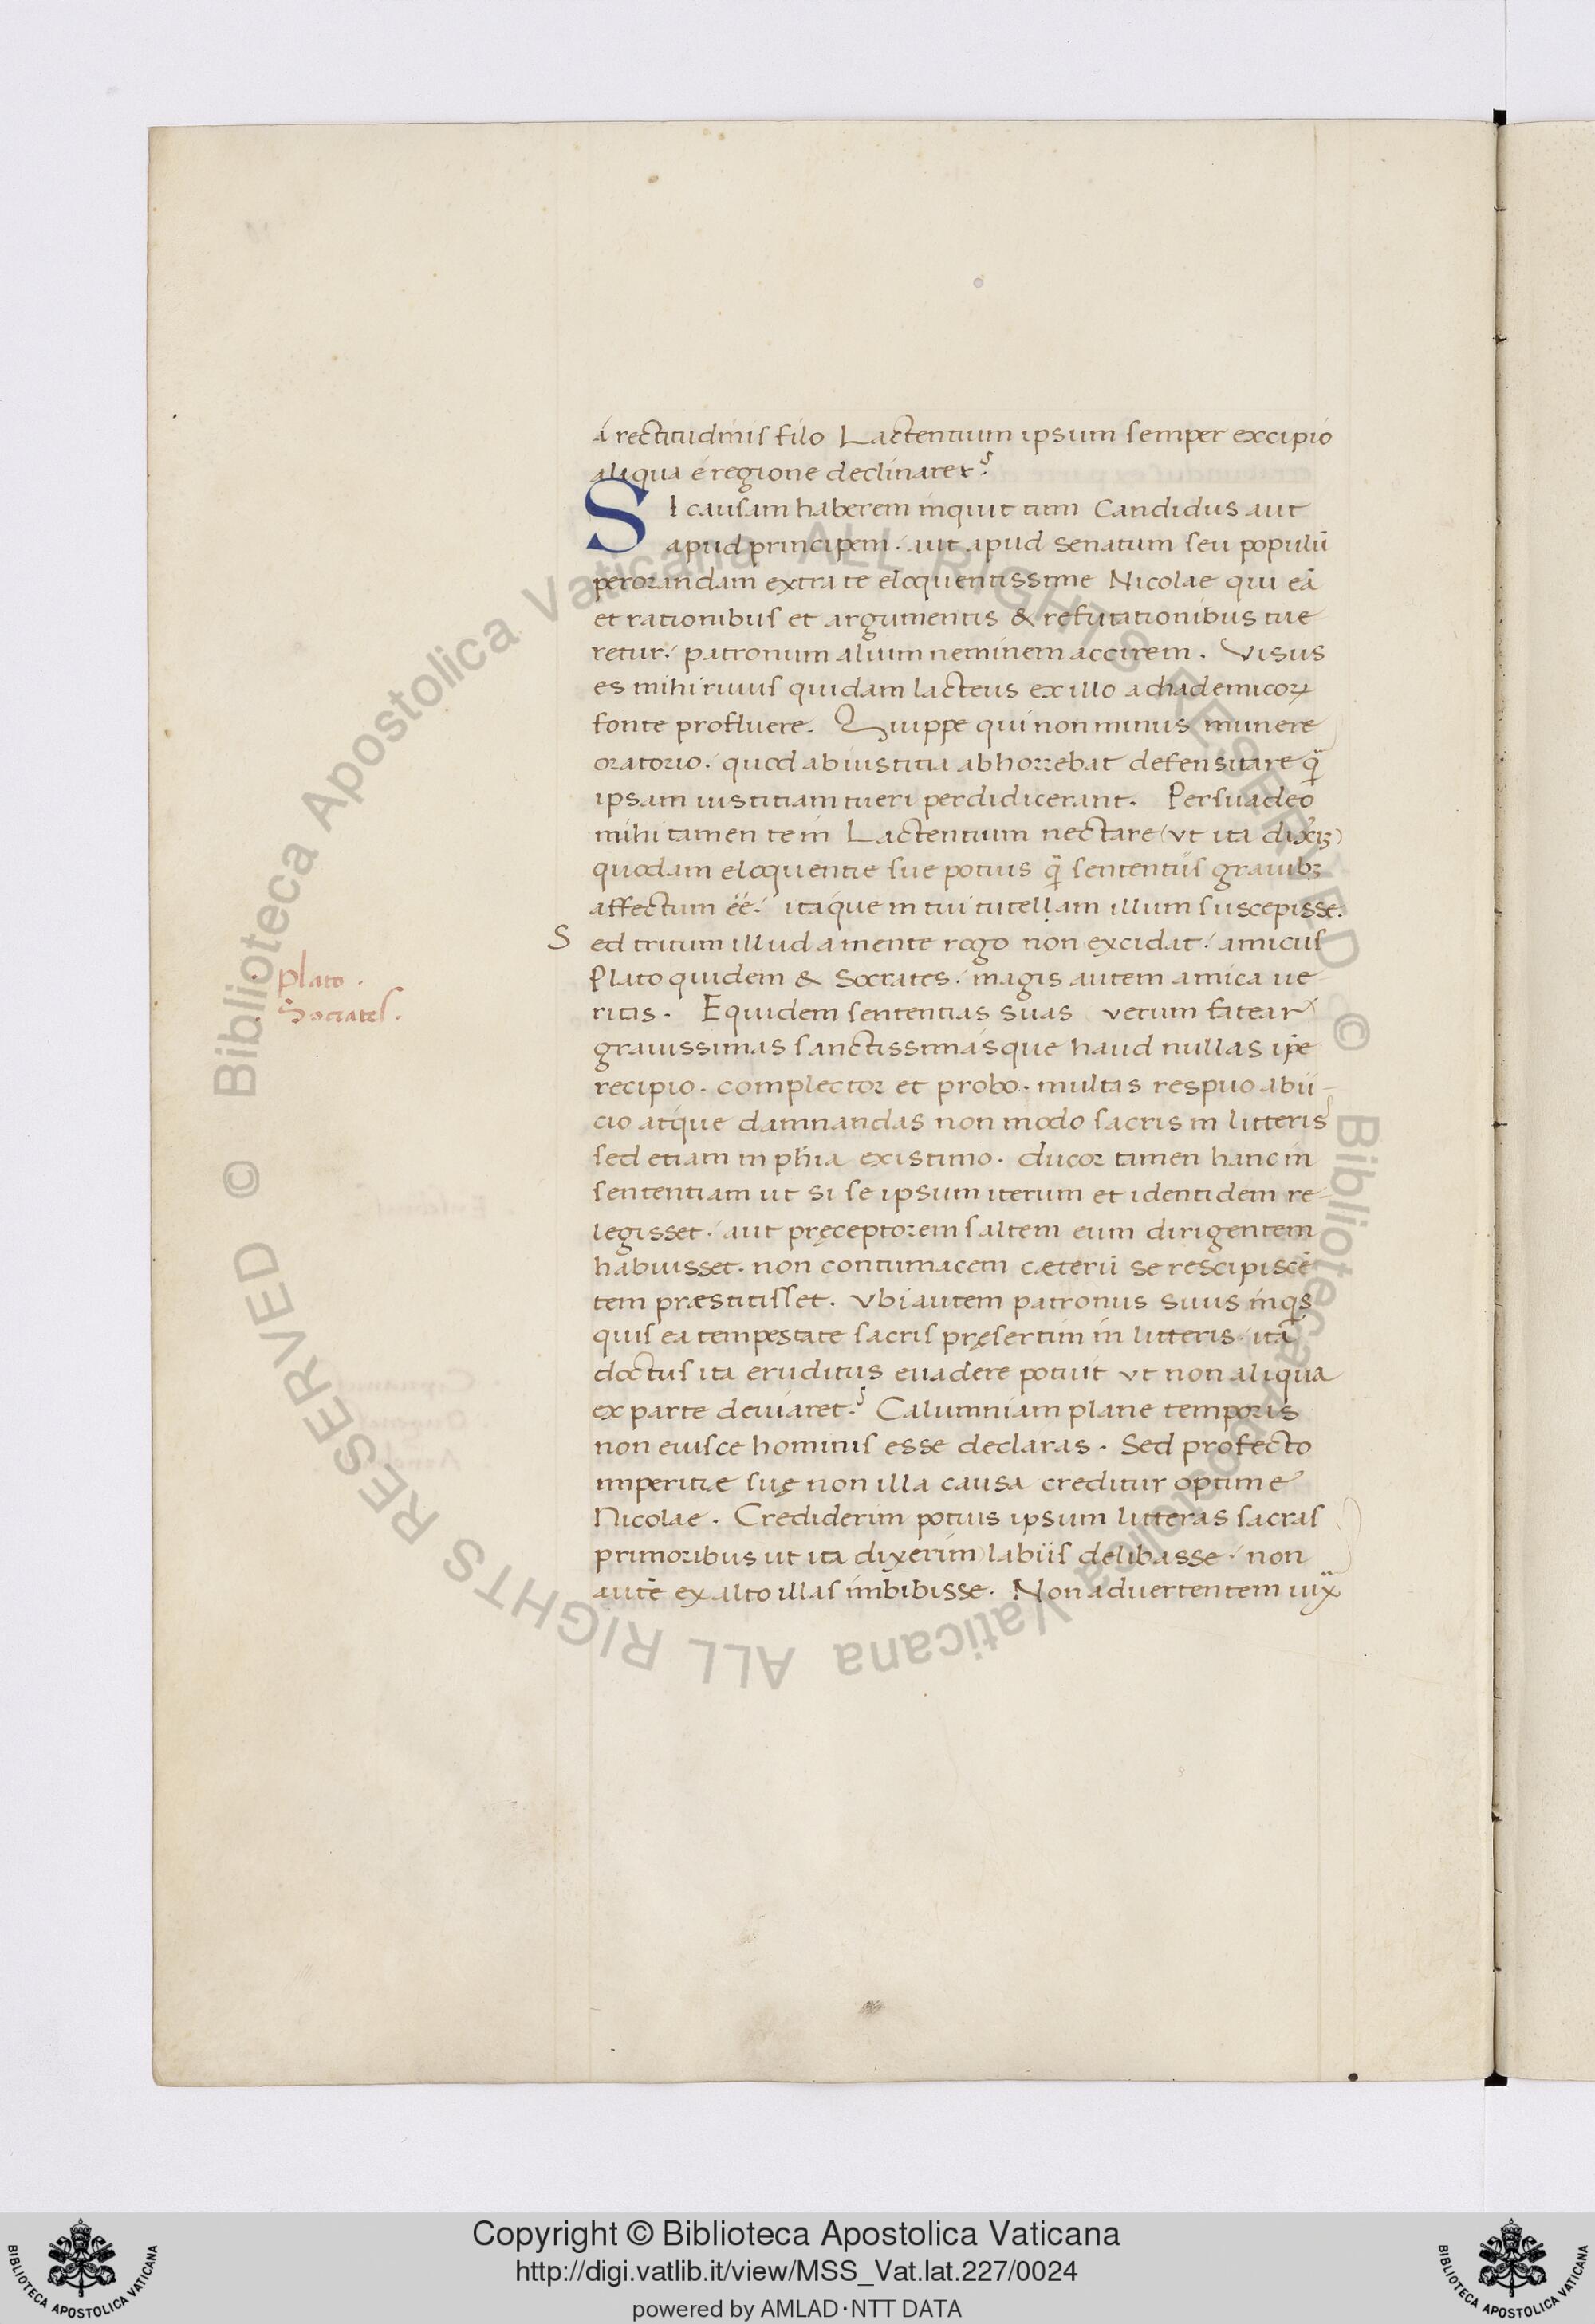 á rectitudinis filo Lactentium ipsum semper excipio
aliqua é regione declinaret?
SI causam haberem inquit tum Candidus aut
apud principem. aut apud senatum seu populū
perorandam extra te eloquentissime Nicolae qui eā
et rationibus et argumentis & refutationibus tue
retur. patronum alium neminem accirem. Visus
es mihi riuus quidam lacteus ex illo achademicoꝝ
fonte profluere. Quippe qui non minus munere
oratorio. quod ab iustitia abhorrebat defensitare q̄
ipsam iustitiam tueri perdidicerant. Persuadeo
mihi tamen te in Lactentium nectare (vt ita dixeri3)
quodam eloquentie sue potius q̄ sententiis grauib3
affectum ēē. itáque in tui tutellam illum suscepisse.
Sed tritum illud a mente rogo non excidat. amicus
plato.
Plato quidem & Socrates. magis autem amica ue
Socrates.
ritas. Equidem sententias suas verum fatear
grauissimas sanctissimásque haud nullas ip̄e
recipio. complector et probo. multas respuo abii-
cio atque damnandas non modo sacris in litteris
sed etiam in phīa existimo. ducor tamen hanc in
sententiam ut si se ipsum iterum et identidem re-
legisset. aut pręceptorem saltem eum dirigentem
habuisset. non contumacem cæterū se rescipiscē
tem præstitisset. Vbi autem patronus suus inq̄s
quis ea tempestate sacris pręsertim in litteris. ita
doctus ita eruditus euadere potuit vt non aliqua
ex parte deuiaret? Calumniam plane temporis
non eiusce hominis esse declaras. Sed profecto
imperitiæ suę non illa causa creditur optime
Nicolae. Crediderim potius ipsum litteras sacras
primoribus ut ita dixerim) labiis delibasse. non
autē ex alto illas imbibisse. Non aduertentem
© Biblioteca Apostolica Vaticana ALL RIGHTS RESERVED © Biblioteca Apostolica Vaticana ALL RIGHTS RESERVED
Copyright © Biblioteca Apostolica Vaticana
http://digi.vatlib.it/view/MSS_Vat.lat.227/0024
powered by AMLAD·NTT DATA
BIBLIOTECA APOSTOLICA VATICANA
BIBLIOTECA APOSTOLICA VATICANA